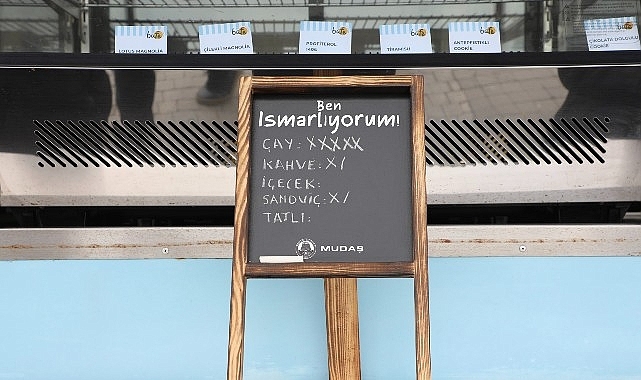 LOTUS MAGNOLİA
ÇİLEKLİ MAGNOLİA
PROFİTEROL
TİRAMİSU
ANTEPFISTIKLI
COOKIE
ÇİKOLATA DOLGULU
COOKIE
Ben
Ismarlıyorum!
ÇAY: XXXXX
KAHVE: X/
İÇECEK:
SANDVİÇ: X/
TATLI:
MUDAŞ